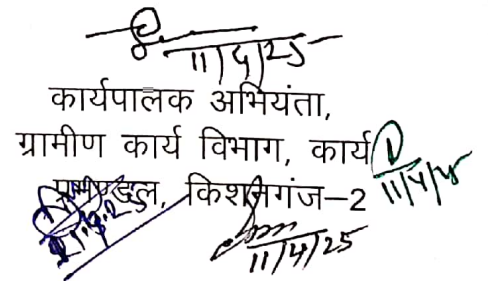 11/4/25
कार्यपालक अभियंता,
ग्रामीण कार्य विभाग, कार्य
प्रमण्डल, किशनगंज-2
11/4/25